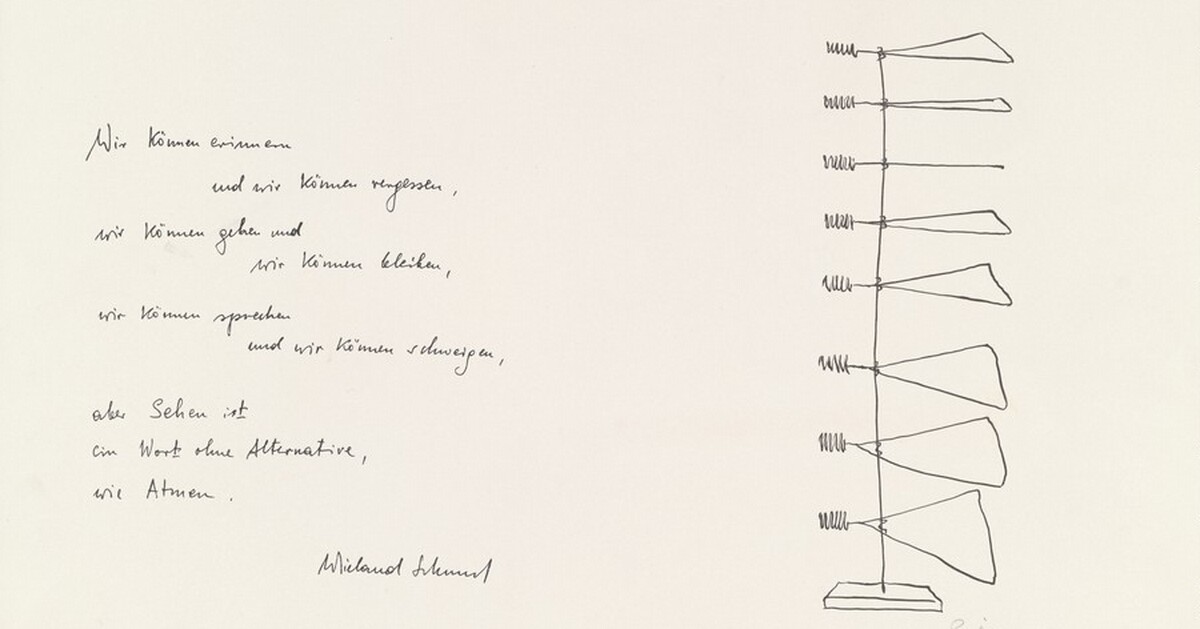 Wir können erinnern
und wir können vergessen,
wir können gehen und
wir können bleiben,
wir können sprechen
und wir können schweigen,
aber Sehen ist
ein Wort ohne Alternative,
wie Atmen.
Wieland Schmied